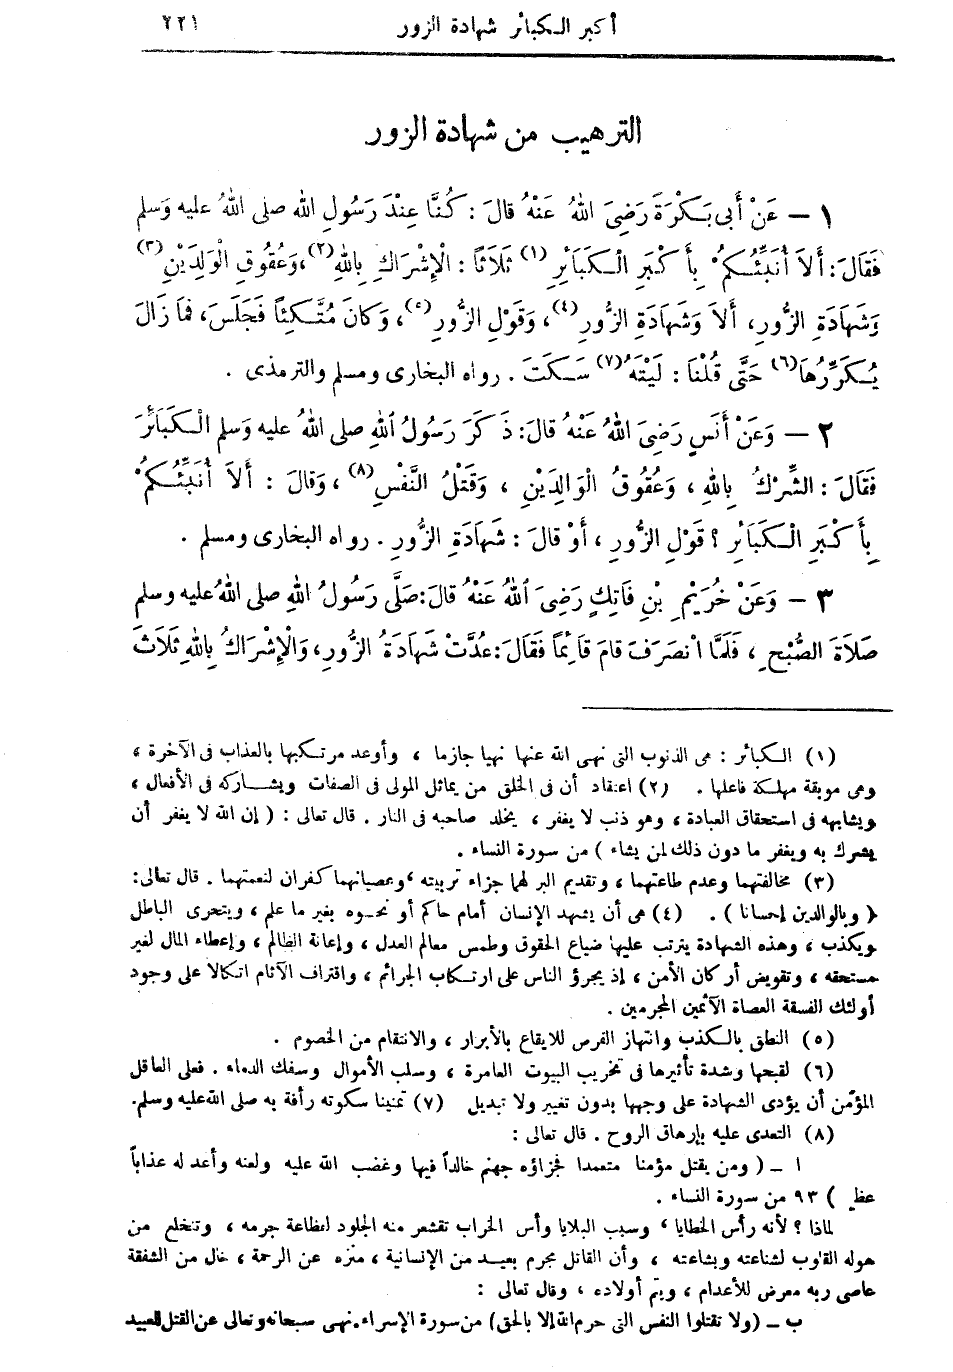 أكبر الكبائر شهادة الزور
٢٢١
الترهيب من شهادة الزور
١ — عَنْ أَبِي بَكْرَةَ رَضِيَ اللهُ عَنْهُ قَالَ: كُنَّا عِنْدَ رَسُولِ اللهِ صلى اللهُ عليه وَسلم
فَقَالَ: أَلاَ أُنَبِّئُكُمْ بِأَكْبَرِ الْكَبَائِرِ (١) ثَلَاثَاً: الْإِشْرَاكُ بِاللهِ (٢)، وَعُقُوقِ الْوَلِدَيْنِ (٣)
وَشَهَادَةِ الزُّورِ، أَلاَ وَشَهَادَةِ الزُّورِ (٤)، وَقَوْلِ الزُّورِ (٥)، وَكَانَ مُتَّكِئاً فَجَلَسَ، فَمَا زَالَ
يُكَرِّرُهَا (٦) حَتَّى قُلْنَا: لَيْتَهُ (٧) سَكَتَ. رواه البخارى ومسلم والترمذى.
٢ — وَعَنْ أَنَسٍ رَضِيَ اللهُ عَنْهُ قالَ: ذَكَرَ رَسُولُ اللهِ صلى اللهُ عليه وَسلم الْكَبَائِرَ
فَقَالَ: الشِّرْكُ بِاللهِ، وَعُقُوقُ الْوَالِدَيْنِ، وَقَتْلُ النَّفْسِ (٨)، وَقالَ: أَلاَ أُنَبِّئُكُمْ
بِأَكْبَرِ الْكَبَائِرِ؟ قَوْلِ الزُّورِ، أَوْ قالَ: شَهَادَةِ الزُّورِ. رواه البخارى ومسلم.
٣ — وَعَنْ خُرَيْمِ بْنِ فَاتِكٍ رَضِيَ اللهُ عَنْهُ قَالَ: صَلَّى رَسُولُ اللهِ صلى اللهُ عليه وسلم
صَلَاةَ الصُّبْحِ، فَلَمَّا انْصَرَفَ قامَ قَائِماً فَقَالَ: عُدَّتْ شَهَادَةُ الزُّورِ، وَالْإِشْرَاكُ بِاللهِ ثَلَاثَ
(١) الكبائر: هى الذنوب التى نهى الله عنها نهيا جازما، وأوعد مرتكبها بالعذاب فى الآخرة،
وهى موبقة مهلكة فاعلها. (٢) اعتقاد أن فى الخلق من يماثل المولى فى الصفات ويشاركه فى الأفعال،
ويشابهه فى استحقاق العبادة، وهو ذنب لا يغفر، يخلد صاحبه فى النار. قال تعالى: (إن الله لا يغفر أن
يشرك به ويغفر ما دون ذلك لمن يشاء) من سورة النساء.
(٣) مخالفتهما وعدم طاعتهما، وتقديم البر لهما جزاء تربيته، وعصيانهما كفران لنعمتهما. قال تعالى:
(وبالوالدين إحسانا). (٤) هى أن يشهد الإنسان أمام حاكم أو نحوه بغير ما علم، ويتحرى الباطل
ويكذب، وهذه الشهادة يترتب عليها ضياع الحقوق وطمس معالم العدل، وإعانة الظالم، وإعطاء المال لغير
مستحقه، وتقويض أركان الأمن، إذ يجرؤ الناس على ارتكاب الجرائم، واقتراف الآثام اتكالا على وجود
أولئك الفسقة العصاة الآثمين المجرمين.
(٥) النطق بالكذب وانتهاز الفرص للايقاع بالأبرار، والانتقام من الخصوم.
(٦) لقبحها وشدة تأثيرها فى تخريب البيوت العامرة، وسلب الأموال وسفك الدماء. فعلى العاقل
المؤمن أن يؤدى الشهادة على وجهها بدون تغيير ولا تبديل (٧) تمنينا سكوته رأفة به صلى الله عليه وسلم.
(٨) التعدى عليه بإزهاق الروح. قال تعالى:
ا — (ومن يقتل مؤمنا متعمدا فجزاؤه جهنم خالداً فيها وغضب الله عليه ولعنه وأعد له عذاباً
) ٩٣ من سورة النساء.
لماذا؟ لأنه رأس الخطايا، وسبب البلايا وأس الخراب تقشعر منه الجلود لفظاعة جرمه، وتنخلع من
هوله القلوب لشناعته وبشاعته، وأن القاتل مجرم بعيد من الإنسانية، منزه عن الرحمة، خال من الشفقة
عاصى ربه معرض للأعدام، ويتم أولاده، وقال تعالى:
ب — (ولا تقتلوا النفس التى حرم الله إلا بالحق) من سورة الإسراء. نهى سبحانه وتعالى عن القتل العبيد